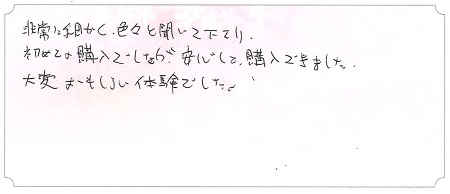 非常に細かく、色々と聞いて下さり、
初めての購入でしたが、安心して、購入できました。
大変おもしろい体験でした。